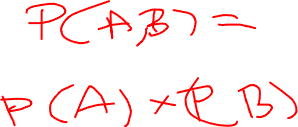 P(A,B) =
P(A) × (P B)